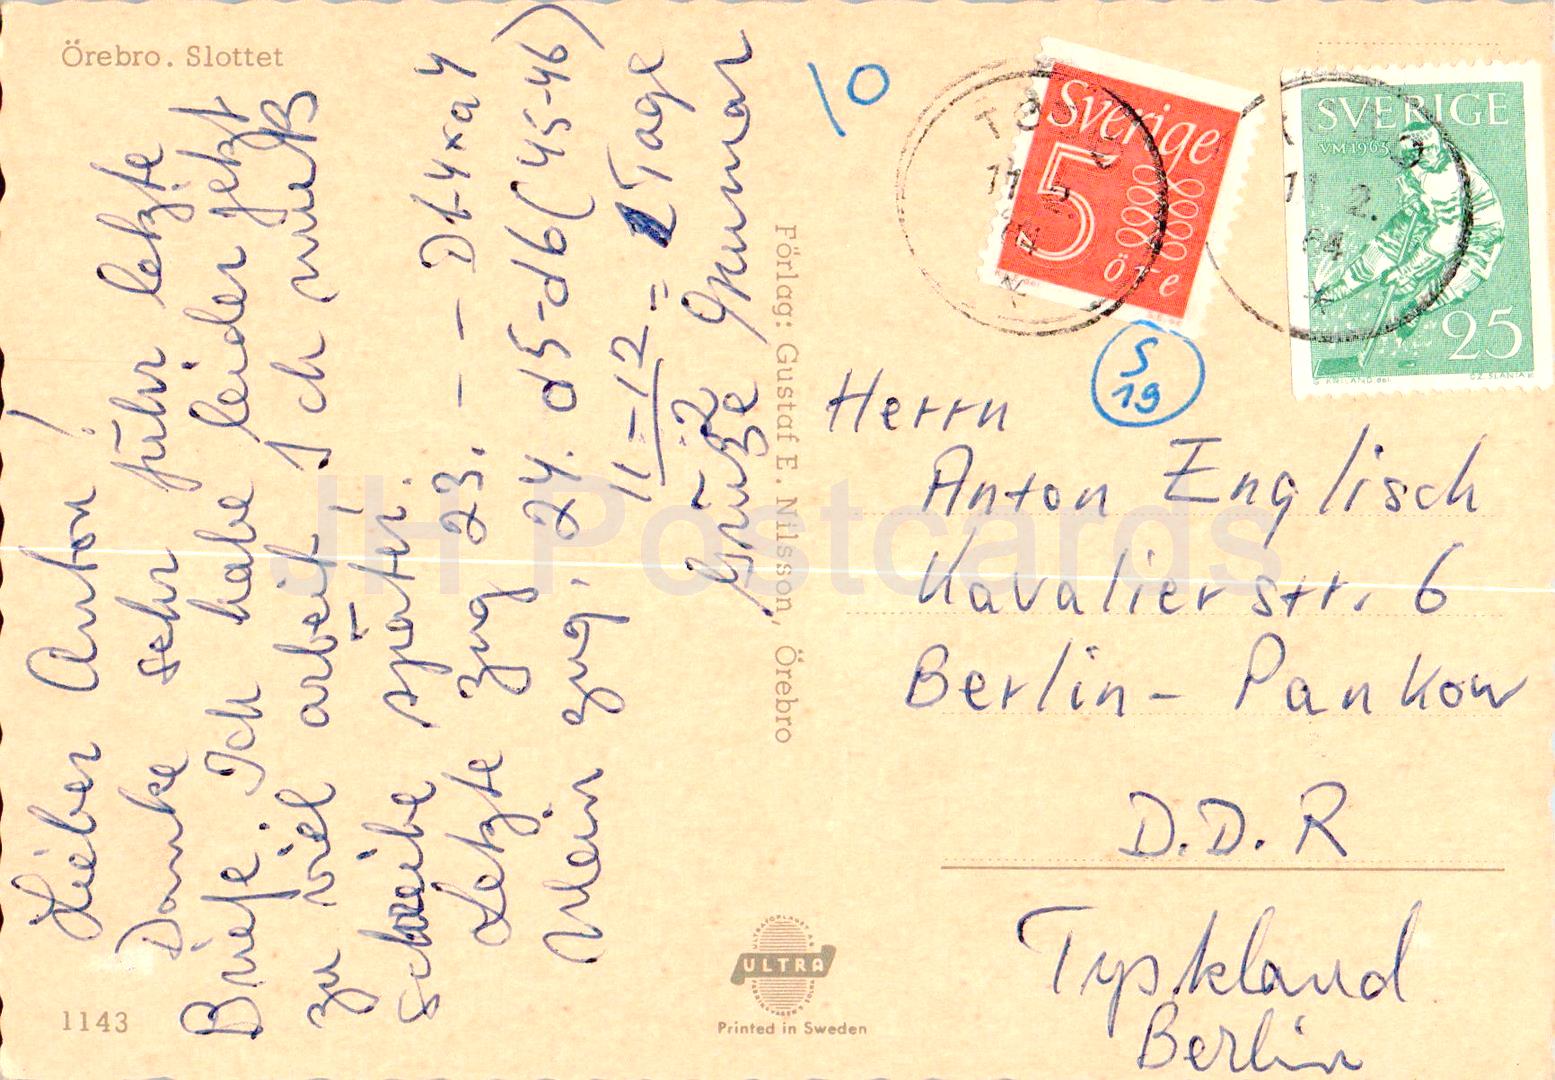 Örebro. Slottet
Lieber Anton!
Danke sehr führ letzte
Briefe. Ich habe leider jetzt
zu viel arbeit! Ich muß
schreibe später.
Letzte zug 23. - - - D1-4xa4
Mein zug. 24. d5-d6 (45-46)
11-12/2 = 2 Tage
Grüße Gunnar
Förlag: Gustaf E. Nilsson, Örebro
1143
ULTRA
Printed in Sweden
10
S
19
Sverige
5
öre
11
SVERIGE
VM 1963
25
11 2.
64
Herrn
Anton Englisch
Kavalierstr. 6
Berlin - Pankow
D.D.R
Tyskland
Berlin
JH Postcards